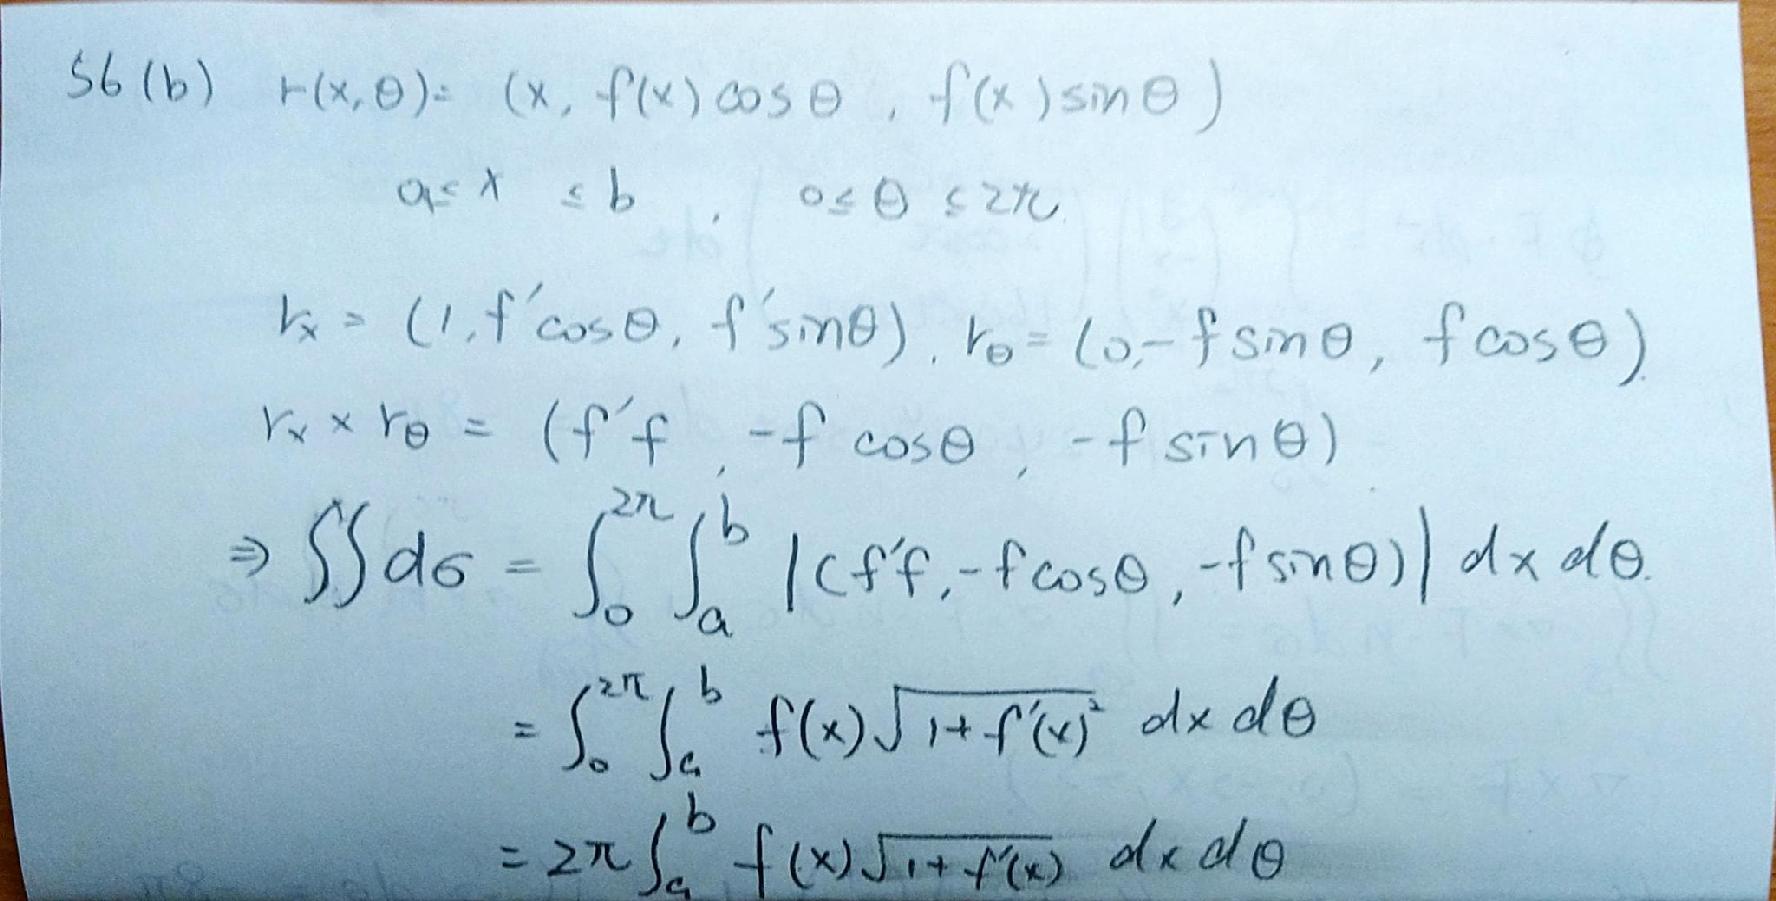 56 (b) r(x,θ) = (x, f(x) cos θ, f(x) sin θ)
a ≤ x ≤ b, 0 ≤ θ ≤ 2π
rₓ = (1, f' cos θ, f' sin θ), r_θ = (0, -f sin θ, f cos θ).
rₓ × r_θ = (f'f, -f cos θ, -f sin θ)
⇒ ∬ dσ = ∫₀^2π ∫ₐ^b |(f'f, -f cos θ, -f sin θ)| dx dθ.
= ∫₀^2π ∫ₐ^b f(x) √(1+f'(x)²) dx dθ
= 2π ∫ₐ^b f(x) √(1+f'(x)) dx dθ